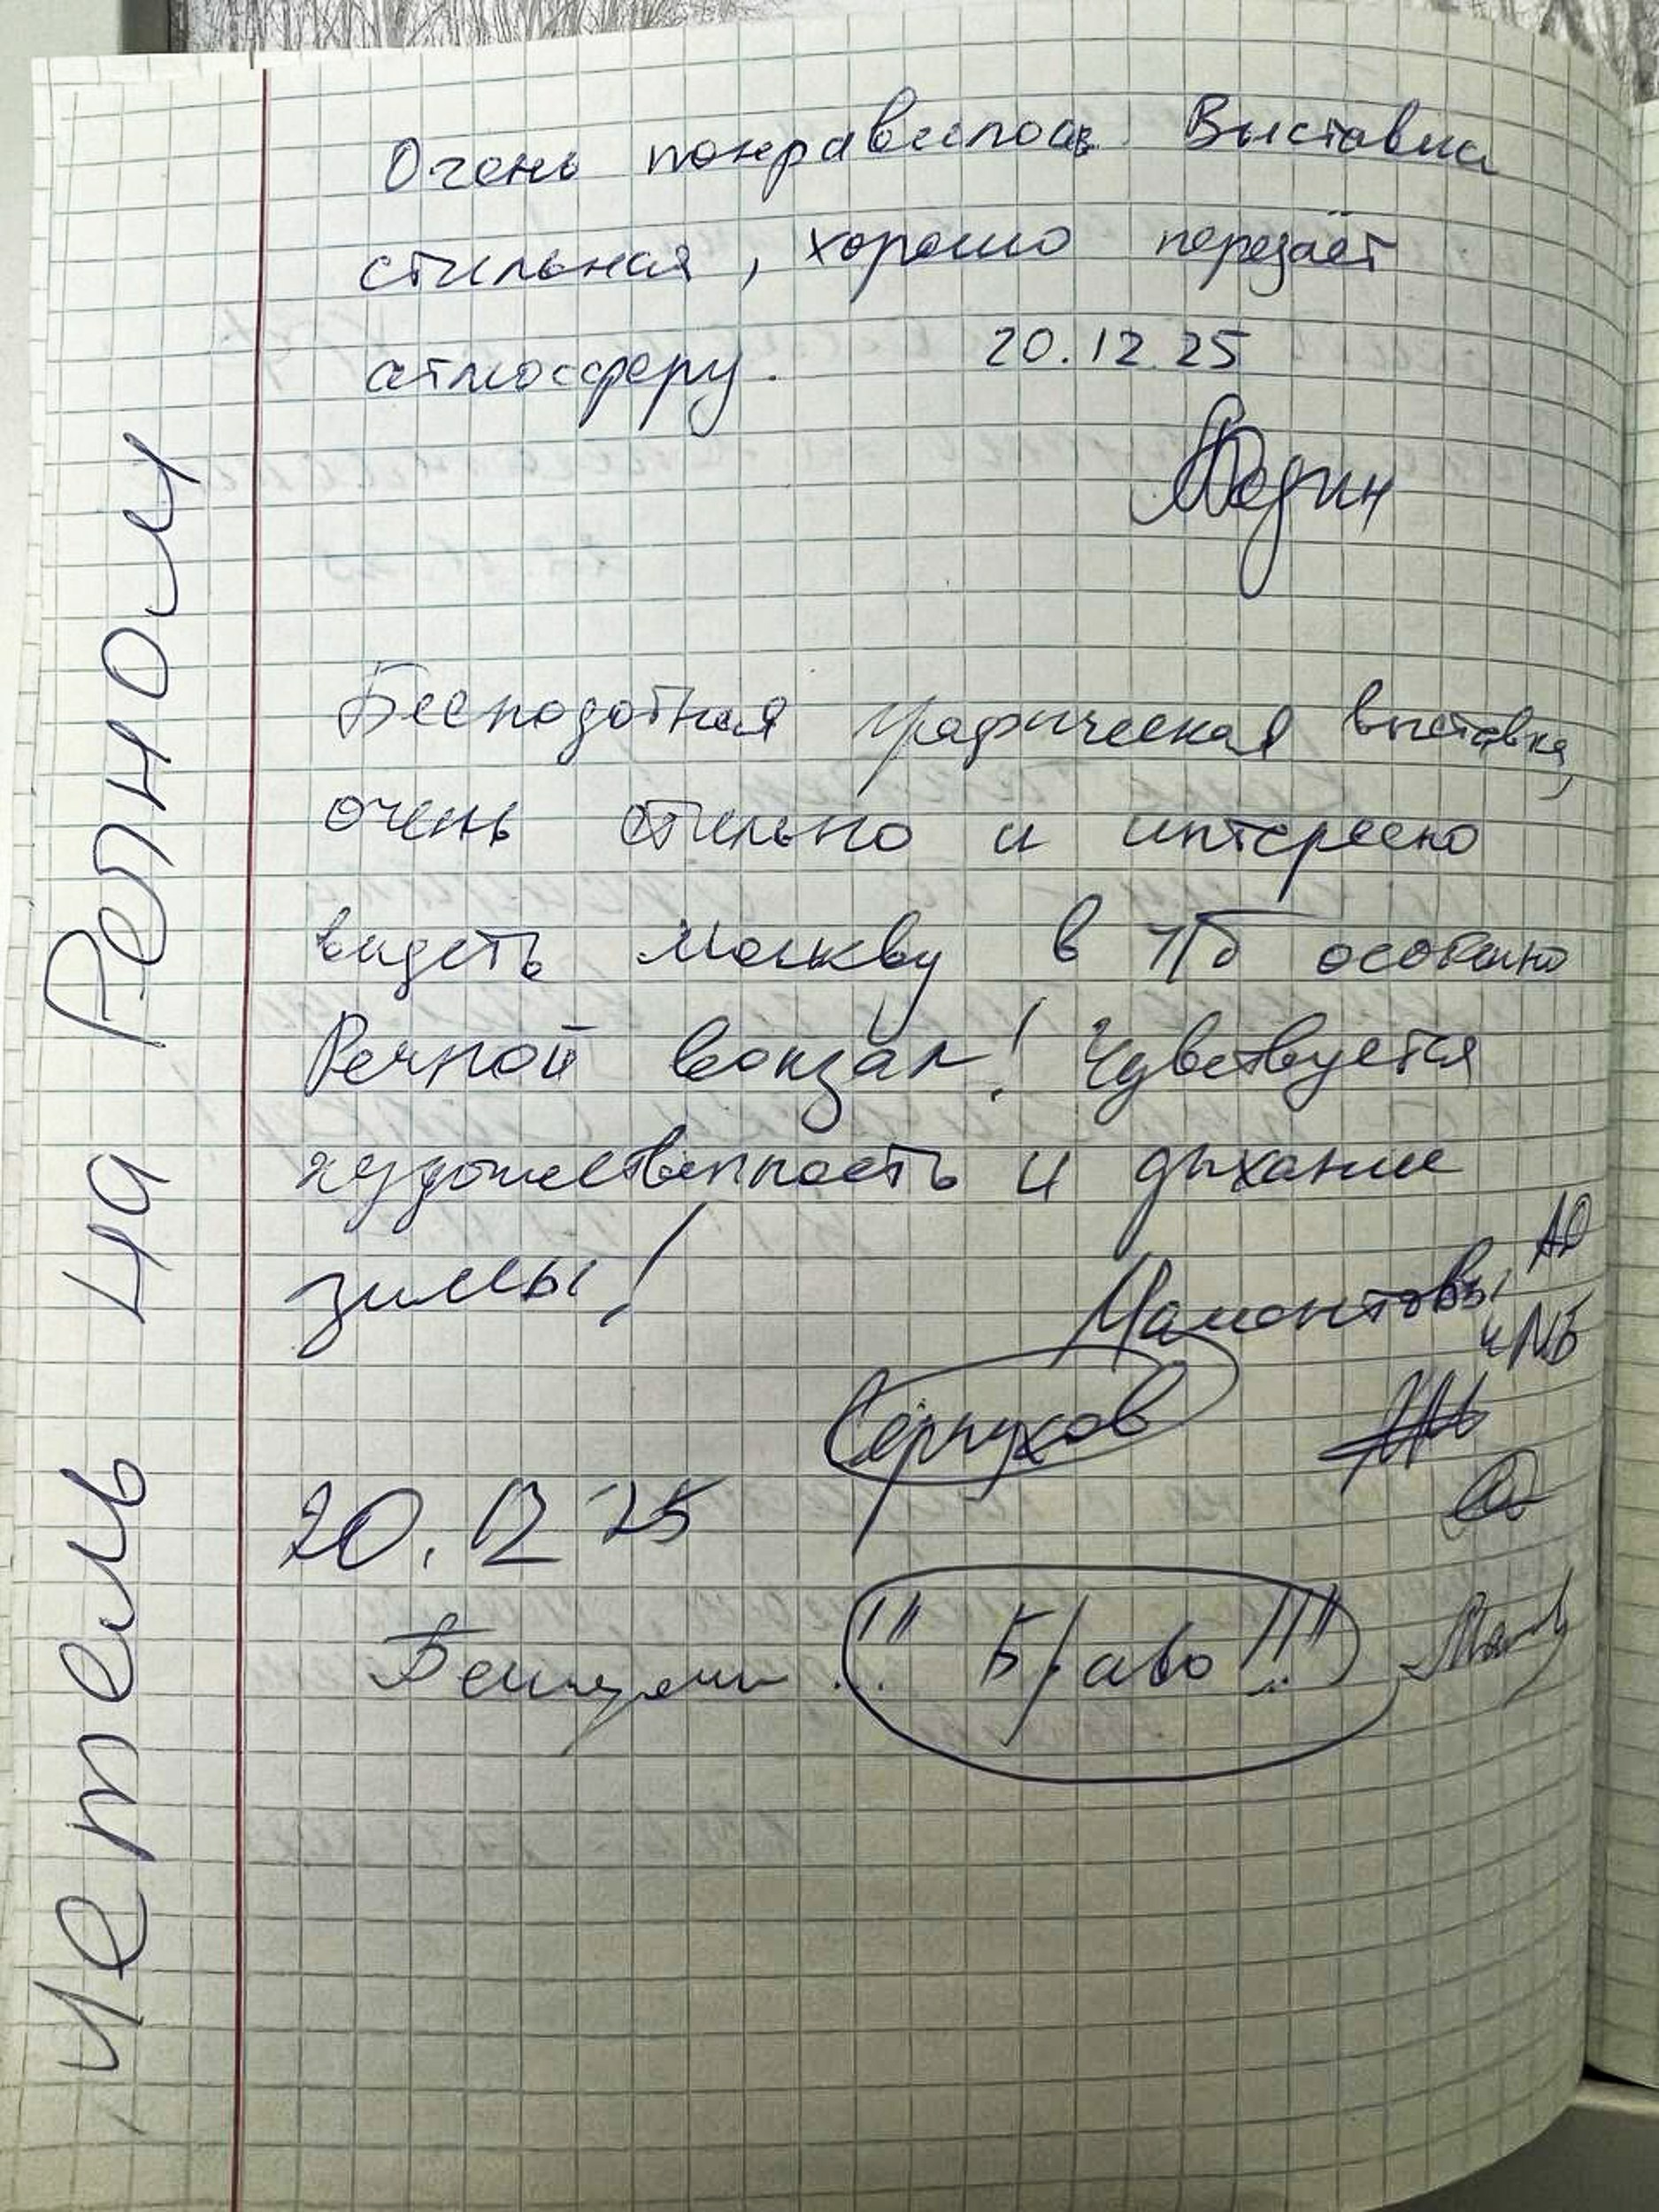 Очень понравилось. Выставка
стильная, хорошо передаёт
атмосферу. 20.12.25
Бесподобная графическая выставка,
очень стильно и интересно
видеть Москву в ЧБ особенно
Речной вокзал! Чувствуется
художественность и дыхание
зимы!
Мамонтовы
АО
и МБ
Серпухов
20.12 25
"Браво!!!"
Метель на Речном